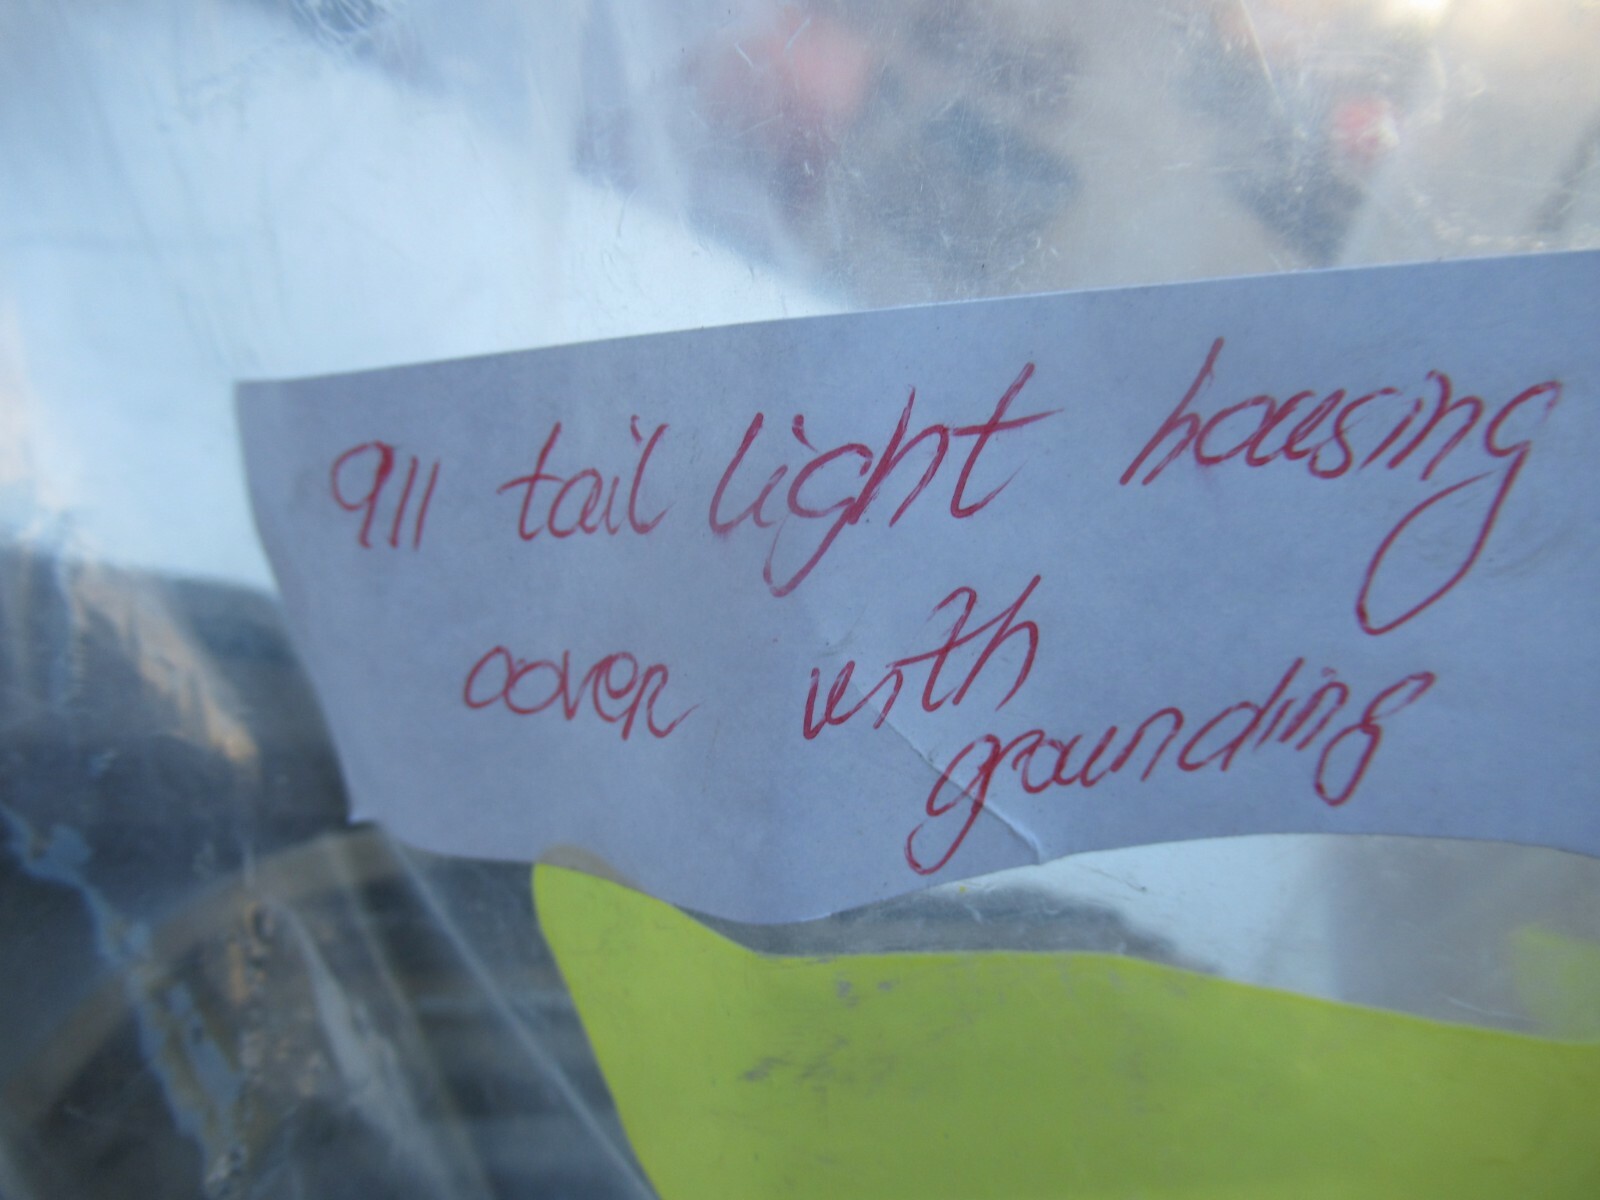 911 tail light housing
cover with
grounding